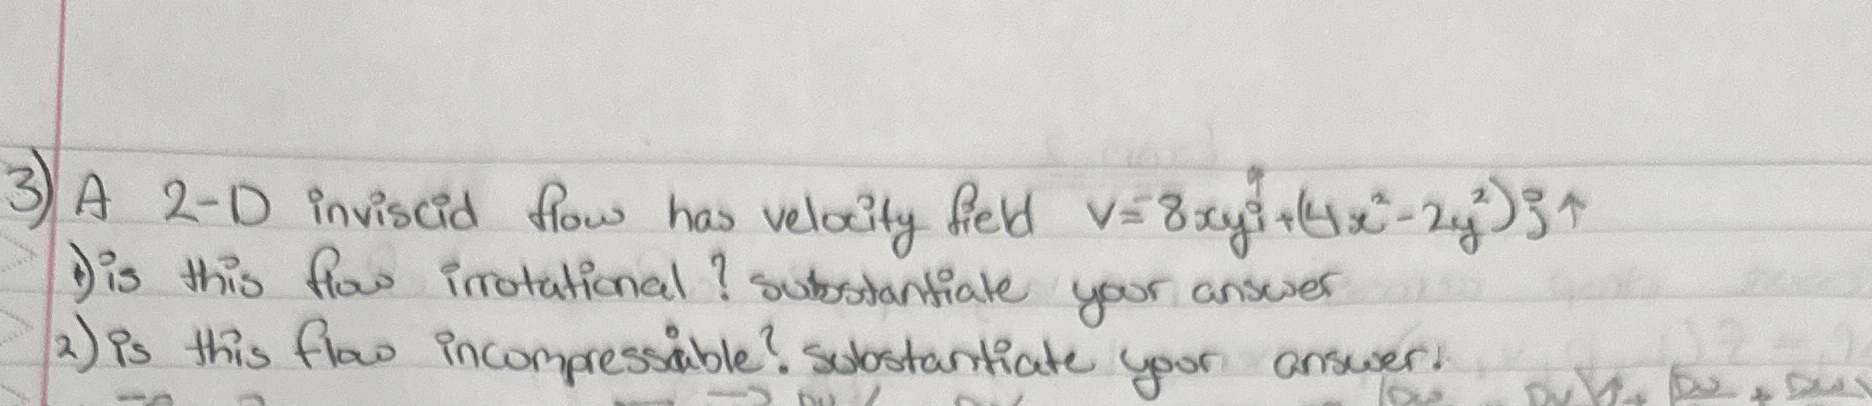 3) A 2-D inviscid flow has velocity field V = 8xyî + (4x² - 2y²)j ↑
1) is this flow irrotational? substantiate your answer
2) is this flow incompressible? substantiate your answer.